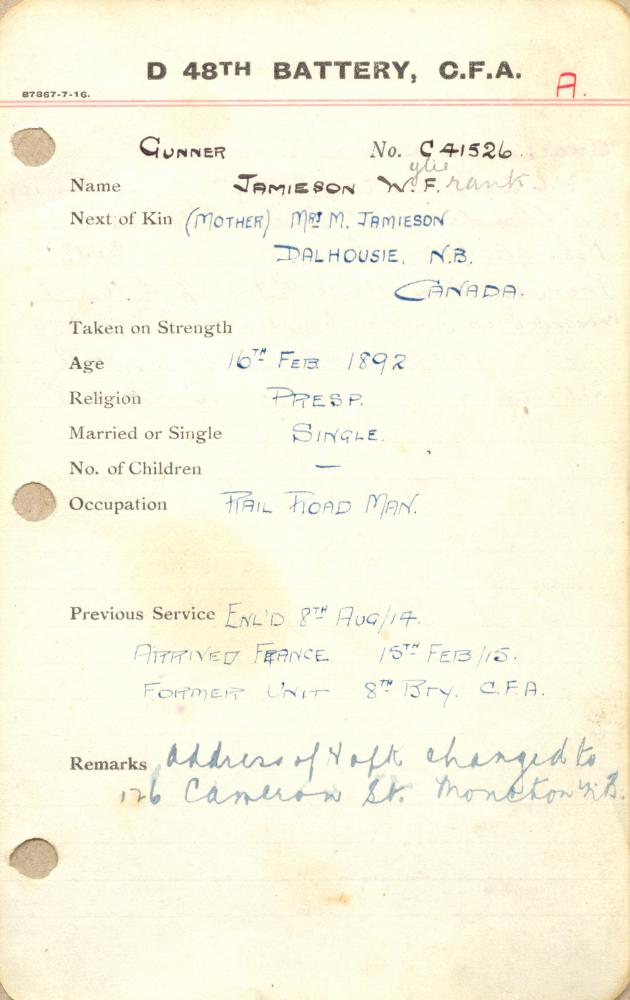 D 48TH BATTERY, C.F.A.
A.
87867-7-16.
GUNNER No. C 41526
ylie
Name JAMIESON W. F. rank.
Next of Kin (MOTHER) MRS M. JAMIESON
DALHOUSIE, N.B.
CANADA.
Taken on Strength
Age 16TH FEB 1892
Religion PRESP.
Married or Single SINGLE.
No. of Children —
Occupation RAIL ROAD MAN.
Previous Service ENL'D 8TH AUG/14.
ARRIVED FRANCE 15TH FEB/15.
FORMER UNIT 8TH BTY. C.F.A.
Remarks address of N of K changed to
126 Cameron St. Moncton N.B.